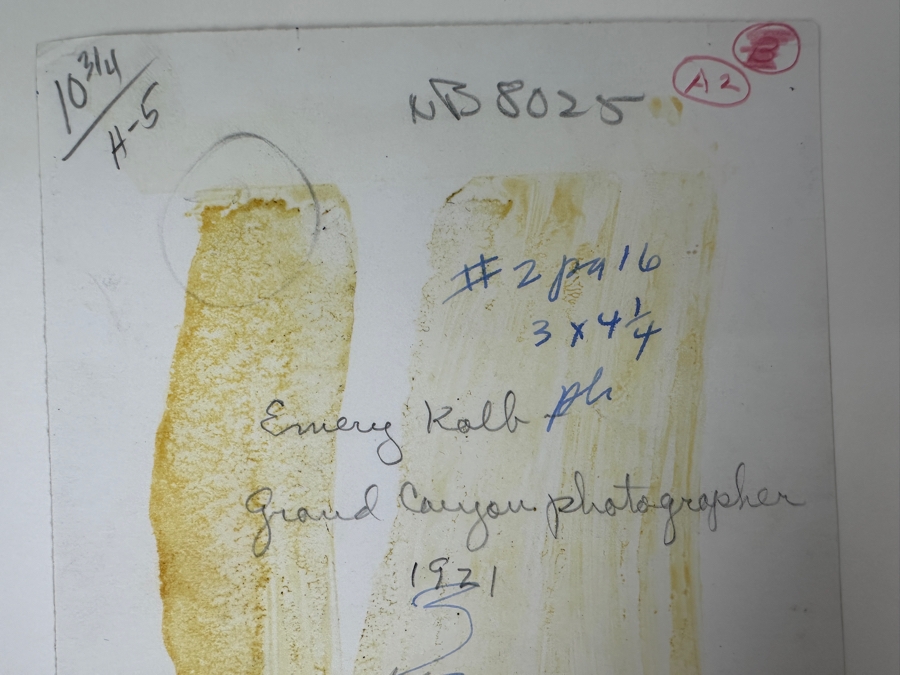 10 3/4
H-5
NB 8025
A2
B
#2 pg 16
3 x 4 1/4
Emery Kolb ph
Grand Canyon photographer
1921